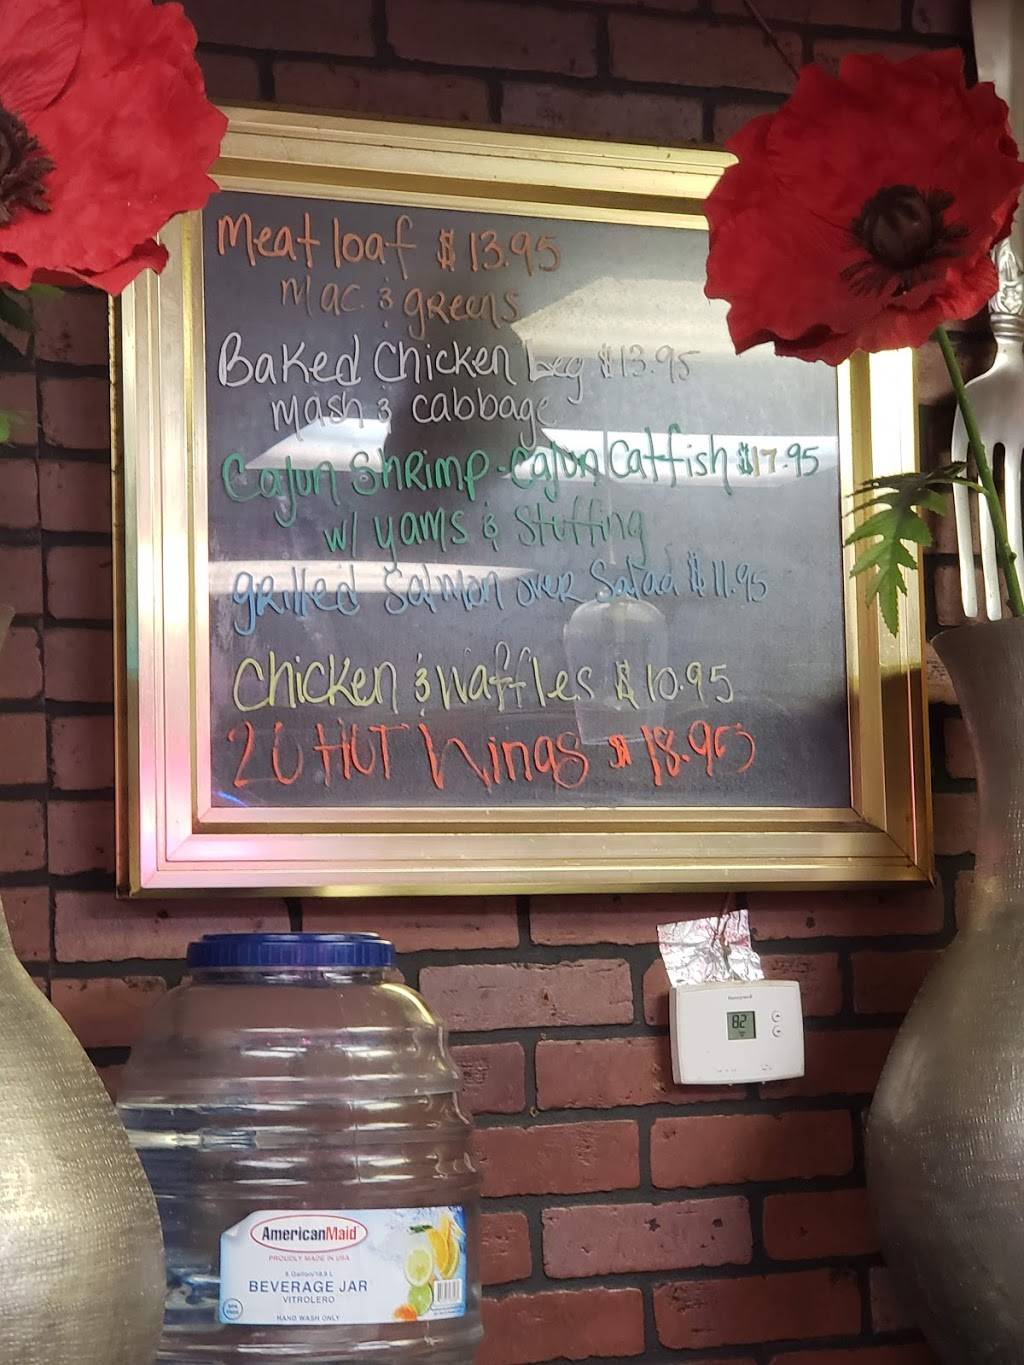 Meat loaf $13.95
Mac & greens
Baked Chicken Leg $13.95
Mash & cabbage
Cajun Shrimp - Cajun Catfish $17.95
w/ yams & Stuffing
grilled Salmon over Salad $11.95
Chicken & Waffles $10.95
20 HOT Wings $18.95
Honeywell
82
AmericanMaid
PROUDLY MADE IN USA
5 Gallon/18.9 L
BEVERAGE JAR
VITROLERO
HAND WASH ONLY